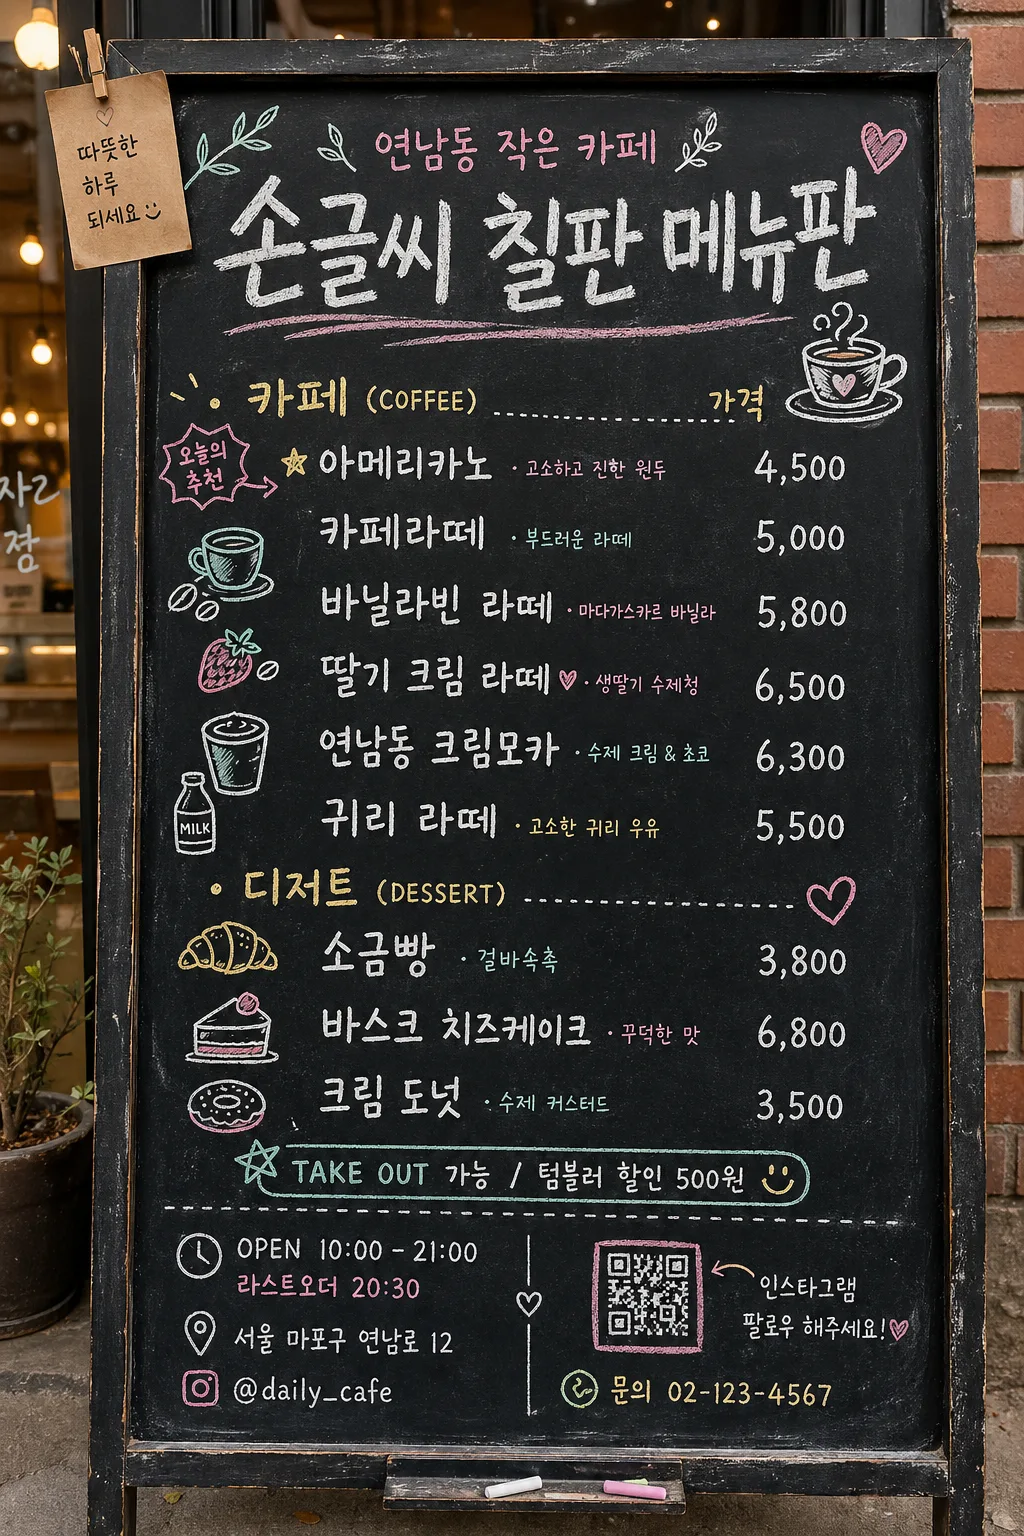 따뜻한
하루
되세요
연남동 작은 카페
손글씨 칠판 메뉴판
카페 (COFFEE) 가격
오늘의
추천
아메리카노 · 고소하고 진한 원두 4,500
카페라떼 · 부드러운 라떼 5,000
바닐라빈 라떼 · 마다가스카르 바닐라 5,800
딸기 크림 라떼 · 생딸기 수제청 6,500
연남동 크림모카 · 수제 크림 & 초코 6,300
귀리 라떼 · 고소한 귀리 우유 5,500
MILK
디저트 (DESSERT)
소금빵 · 겉바속촉 3,800
바스크 치즈케이크 · 꾸덕한 맛 6,800
크림 도넛 · 수제 커스터드 3,500
TAKE OUT 가능 / 텀블러 할인 500원
OPEN 10:00 - 21:00
라스트오더 20:30
서울 마포구 연남로 12
@daily_cafe
인스타그램
팔로우 해주세요!
문의 02-123-4567